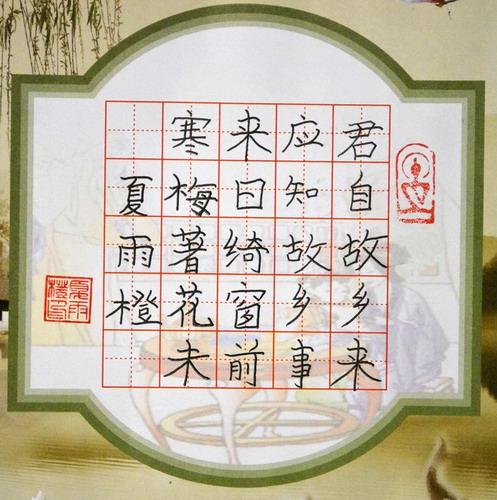 君自故乡来
应知故乡事
来曰绮窗前
寒梅著花未
夏雨橙